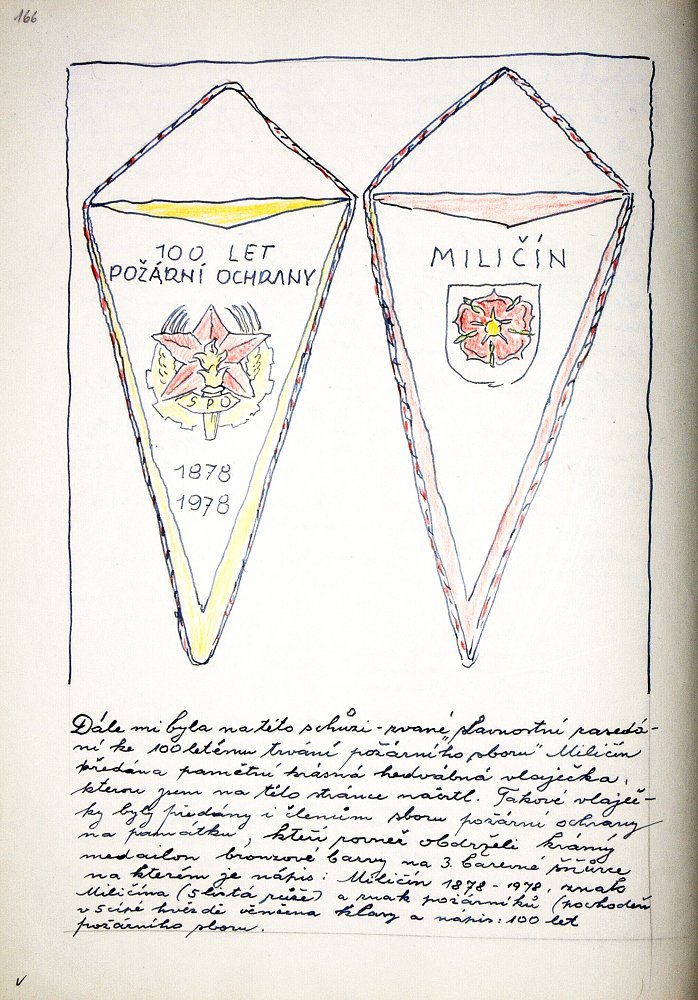 166
100 LET
POŽÁRNÍ OCHRANY
SPO
1878
1978
MILIČÍN
Dále mi byla na této schůzi - zvané „slavnostní zasedá-
ní ke 100letému trvání požárního sboru" Miličín
předána pamětní krásná hedvábná vlaječka,
kterou jsem na této stránce načrtl. Takové vlaječ-
ky byly předány i členům sboru požární ochrany
na památku, kteří rovněž obdrželi krásný
medailon bronzové barvy na 3. barevné šňůrce
na kterém je nápis: Miličín 1878 - 1978, znak
Miličína (5 listá růže) a znak požárníků (pochodeň
v 5 cípé hvězdě věnčena klasy a nápis: 100 let
požárního sboru.